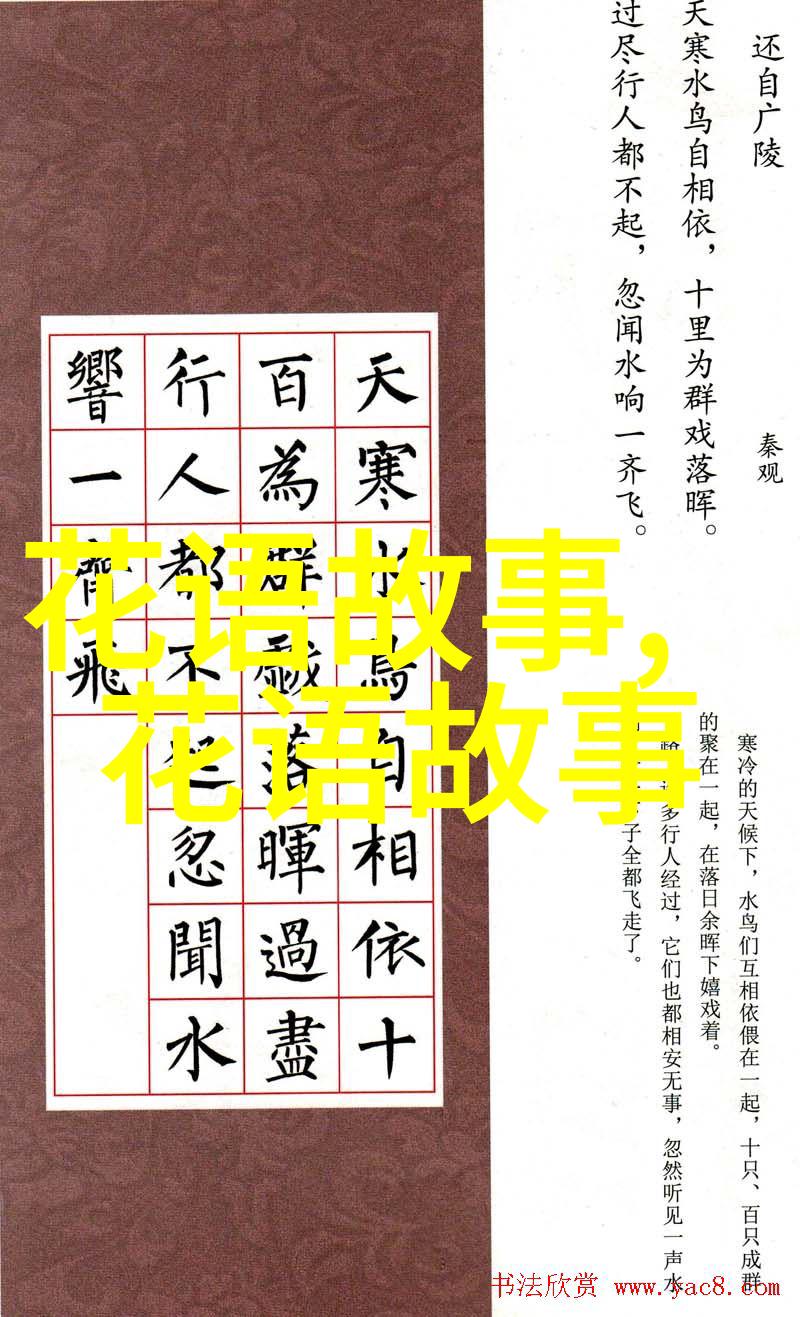 还自广陵
秦观
天寒水鸟自相依，十里为群戏落晖。
过尽行人都不起，忽闻水响一齐飞。
天寒水鳥自相依十
百為群戲落暉過盡
行人都不起忽聞水
響一齊飛
花语故事，
花语故事
寒冷的天候下，水鸟们互相依偎在一起，十只、百只成群
的聚在一起，在落日余晖下嬉戏着。
多行人经过，它们也都相安无事，忽然听见一声水
子全都飞走了。
书法欣赏 www.yac8.com